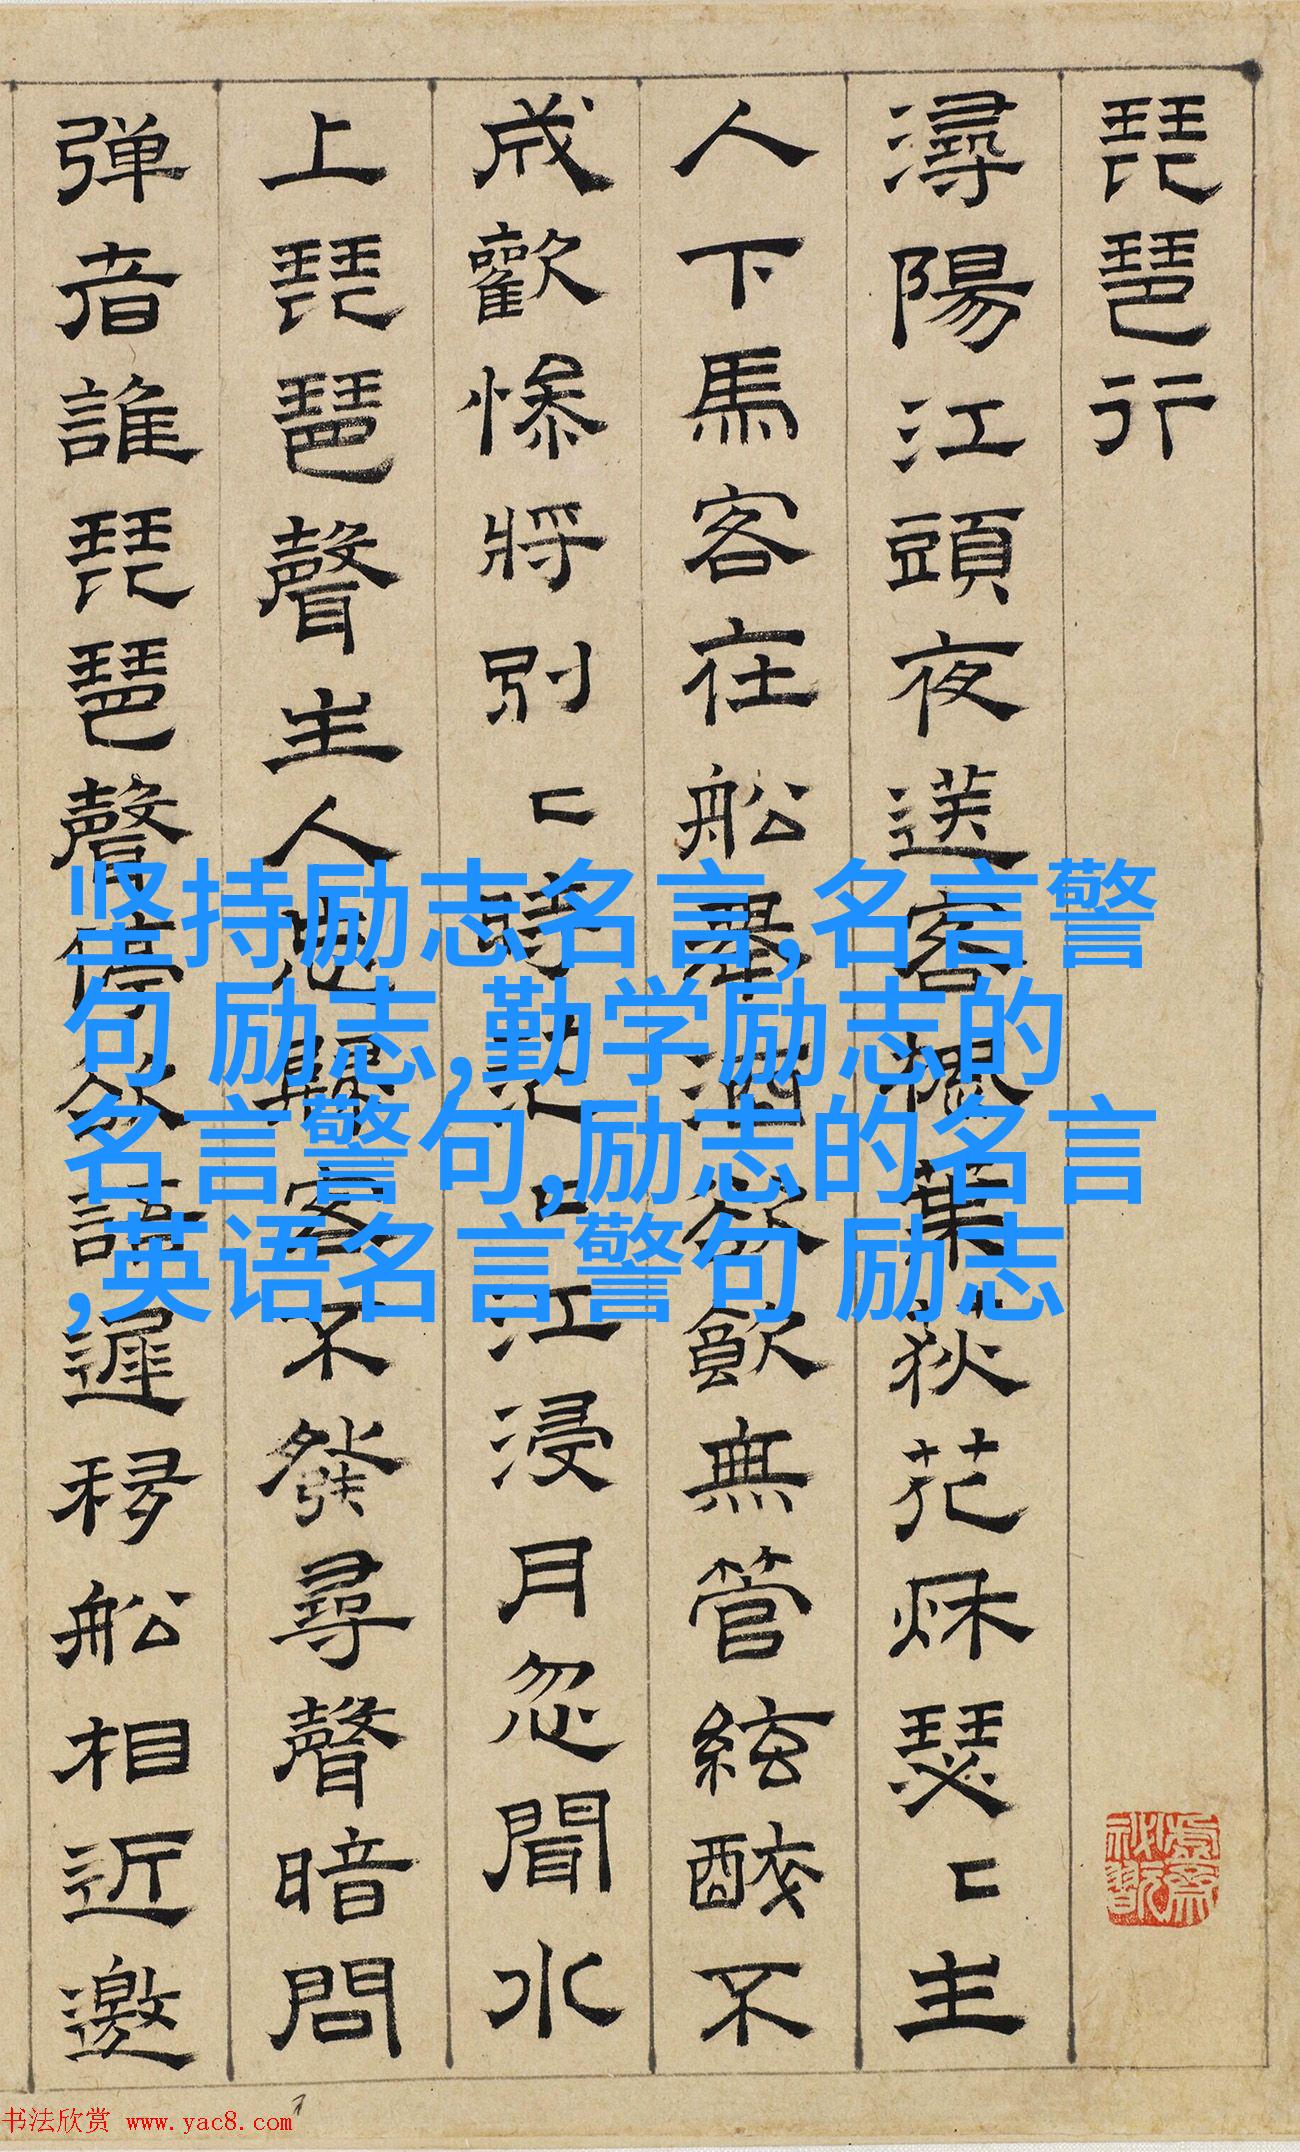 琵琶行
潯陽江頭夜送客楓葉荻花秋瑟〻主
人下馬客在船舉酒欲飲無管絃醉不
成歡慘將別〻時茫〻江浸月忽聞水
上琵琶聲主人忘歸客不發尋聲暗問
弹者誰琵琶聲停欲語遲移船相近邀
坚持励志名言,名言警
句 励志,勤学励志的
名言警句,励志的名言
,英语名言警句 励志
书法欣赏 www.yac8.com